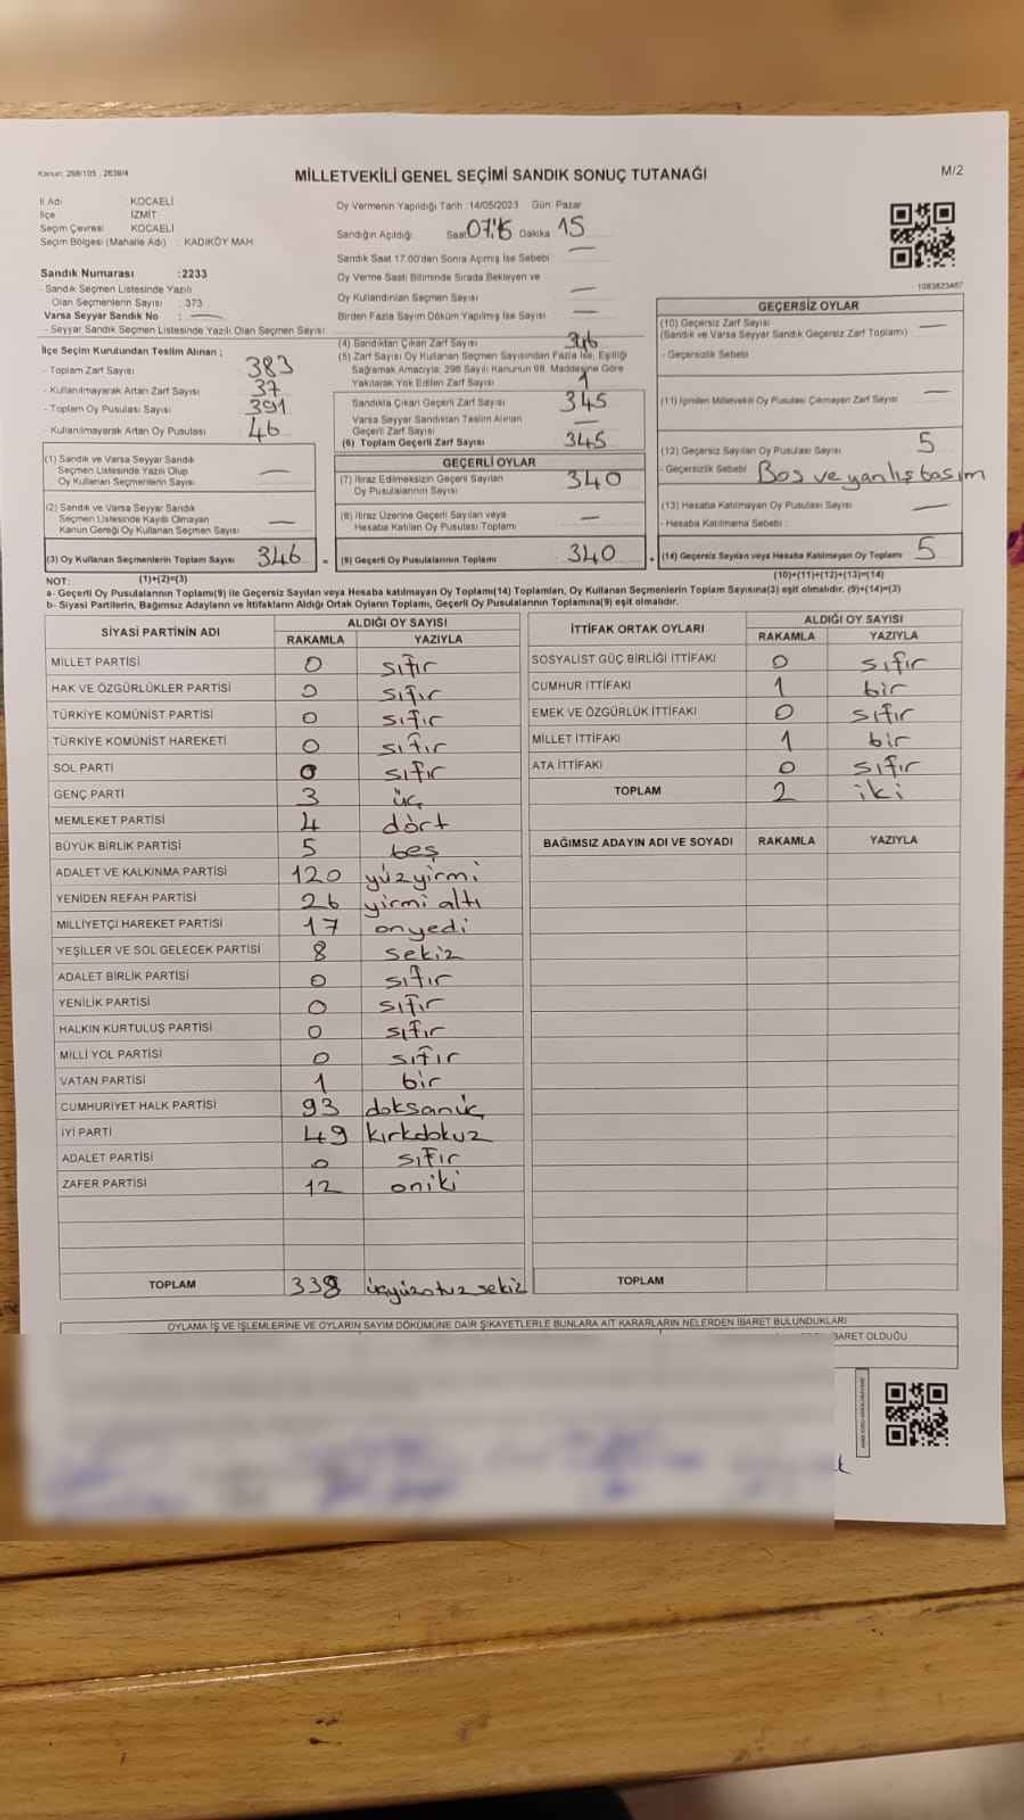 Kanun: 298/105 , 2839/4
MİLLETVEKİLİ GENEL SEÇİMİ SANDIK SONUÇ TUTANAĞI
M/2
İl Adı KOCAELİ
İlçe İZMİT
Seçim Çevresi KOCAELİ
Seçim Bölgesi (Mahalle Adı) : KADIKÖY MAH
Sandık Numarası :2233
- Sandık Seçmen Listesinde Yazılı
Olan Seçmenlerin Sayısı : 373
Varsa Seyyar Sandık No : —
- Seyyar Sandık Seçmen Listesinde Yazılı Olan Seçmen Sayısı:
Oy Vermenin Yapıldığı Tarih :14/05/2023 Gün: Pazar
Sandığın Açıldığı Saat Dakika 15
Sandık Saat 17.00'den Sonra Açılmış İse Sebebi —
Oy Verme Saati Bitiminde Sırada Bekleyen ve
Oy Kullandırılan Seçmen Sayısı —
Birden Fazla Sayım Döküm Yapılmış İse Sayısı —
1083623487
İlçe Seçim Kurulundan Teslim Alınan ;
- Toplam Zarf Sayısı 383
- Kullanılmayarak Artan Zarf Sayısı 37
- Toplam Oy Pusulası Sayısı 391
- Kullanılmayarak Artan Oy Pusulası 46
(1) Sandık ve Varsa Seyyar Sandık
Seçmen Listesinde Yazılı Olup
Oy Kullanan Seçmenlerin Sayısı —
(2) Sandık ve Varsa Seyyar Sandık
Seçmen Listesinde Kayıtlı Olmayan
Kanun Gereği Oy Kullanan Seçmen Sayısı —
(3) Oy Kullanan Seçmenlerin Toplam Sayısı 346
(1)+(2)=(3)
(4) Sandıktan Çıkan Zarf Sayısı 346
(5) Zarf Sayısı Oy Kullanan Seçmen Sayısından Fazla İse, Eşitliği
Sağlamak Amacıyla, 298 Sayılı Kanunun 98. Maddesine Göre
Yakılarak Yok Edilen Zarf Sayısı 1
Sandıkta Çıkan Geçerli Zarf Sayısı 345
Varsa Seyyar Sandıktan Teslim Alınan
Geçerli Zarf Sayısı —
(6) Toplam Geçerli Zarf Sayısı 345
GEÇERLİ OYLAR
(7) İtiraz Edilmeksizin Geçerli Sayılan
Oy Pusulalarının Sayısı 340
(8) İtiraz Üzerine Geçerli Sayılan veya
Hesaba Katılan Oy Pusulası Toplamı —
= (9) Geçerli Oy Pusulalarının Toplamı 340
GEÇERSİZ OYLAR
(10) Geçersiz Zarf Sayısı —
(Sandık ve Varsa Seyyar Sandık Geçersiz Zarf Toplamı)
- Geçersizlik Sebebi
(11) İçinden Milletvekili Oy Pusulası Çıkmayan Zarf Sayısı —
(12) Geçersiz Sayılan Oy Pusulası Sayısı 5
- Geçersizlik Sebebi Boş ve yanlış basım
(13) Hesaba Katılmayan Oy Pusulası Sayısı —
- Hesaba Katılmama Sebebi :
+ (14) Geçersiz Sayılan veya Hesaba Katılmayan Oy Toplamı 5
(10)+(11)+(12)+(13)=(14)
NOT:
a- Geçerli Oy Pusulalarının Toplamı(9) ile Geçersiz Sayılan veya Hesaba katılmayan Oy Toplamı(14) Toplamları, Oy Kullanan Seçmenlerin Toplam Sayısına(3) eşit olmalıdır. (9)+(14)=(3)
b- Siyasi Partilerin, Bağımsız Adayların ve İttifakların Aldığı Ortak Oyların Toplamı, Geçerli Oy Pusulalarının Toplamına(9) eşit olmalıdır.
SİYASİ PARTİNİN ADI ALDIĞI OY SAYISI
RAKAMLA YAZIYLA
MİLLET PARTİSİ 0 sıfır
HAK VE ÖZGÜRLÜKLER PARTİSİ 0 sıfır
TÜRKİYE KOMÜNİST PARTİSİ 0 sıfır
TÜRKİYE KOMÜNİST HAREKETİ 0 sıfır
SOL PARTİ 0 sıfır
GENÇ PARTİ 3 üç
MEMLEKET PARTİSİ 4 dört
BÜYÜK BİRLİK PARTİSİ 5 beş
ADALET VE KALKINMA PARTİSİ 120 yüzyirmi
YENİDEN REFAH PARTİSİ 26 yirmi altı
MİLLİYETÇİ HAREKET PARTİSİ 17 onyedi
YEŞİLLER VE SOL GELECEK PARTİSİ 8 sekiz
ADALET BİRLİK PARTİSİ 0 sıfır
YENİLİK PARTİSİ 0 sıfır
HALKIN KURTULUŞ PARTİSİ 0 sıfır
MİLLİ YOL PARTİSİ 0 sıfır
VATAN PARTİSİ 1 bir
CUMHURİYET HALK PARTİSİ 93 doksanüç
İYİ PARTİ 49 kırkdokuz
ADALET PARTİSİ 0 sıfır
ZAFER PARTİSİ 12 oniki
TOPLAM 338 üçyüzotuz sekiz
İTTİFAK ORTAK OYLARI ALDIĞI OY SAYISI
RAKAMLA YAZIYLA
SOSYALİST GÜÇ BİRLİĞİ İTTİFAKI 0 sıfır
CUMHUR İTTİFAKI 1 bir
EMEK VE ÖZGÜRLÜK İTTİFAKI 0 sıfır
MİLLET İTTİFAKI 1 bir
ATA İTTİFAKI 0 sıfır
TOPLAM 2 iki
BAĞIMSIZ ADAYIN ADI VE SOYADI RAKAMLA YAZIYLA
TOPLAM
OYLAMA İŞ VE İŞLEMLERİNE VE OYLARIN SAYIM DÖKÜMÜNE DAİR ŞİKAYETLERLE BUNLARA AİT KARARLARIN NELERDEN İBARET BULUNDUKLARI
BARET OLDUĞU